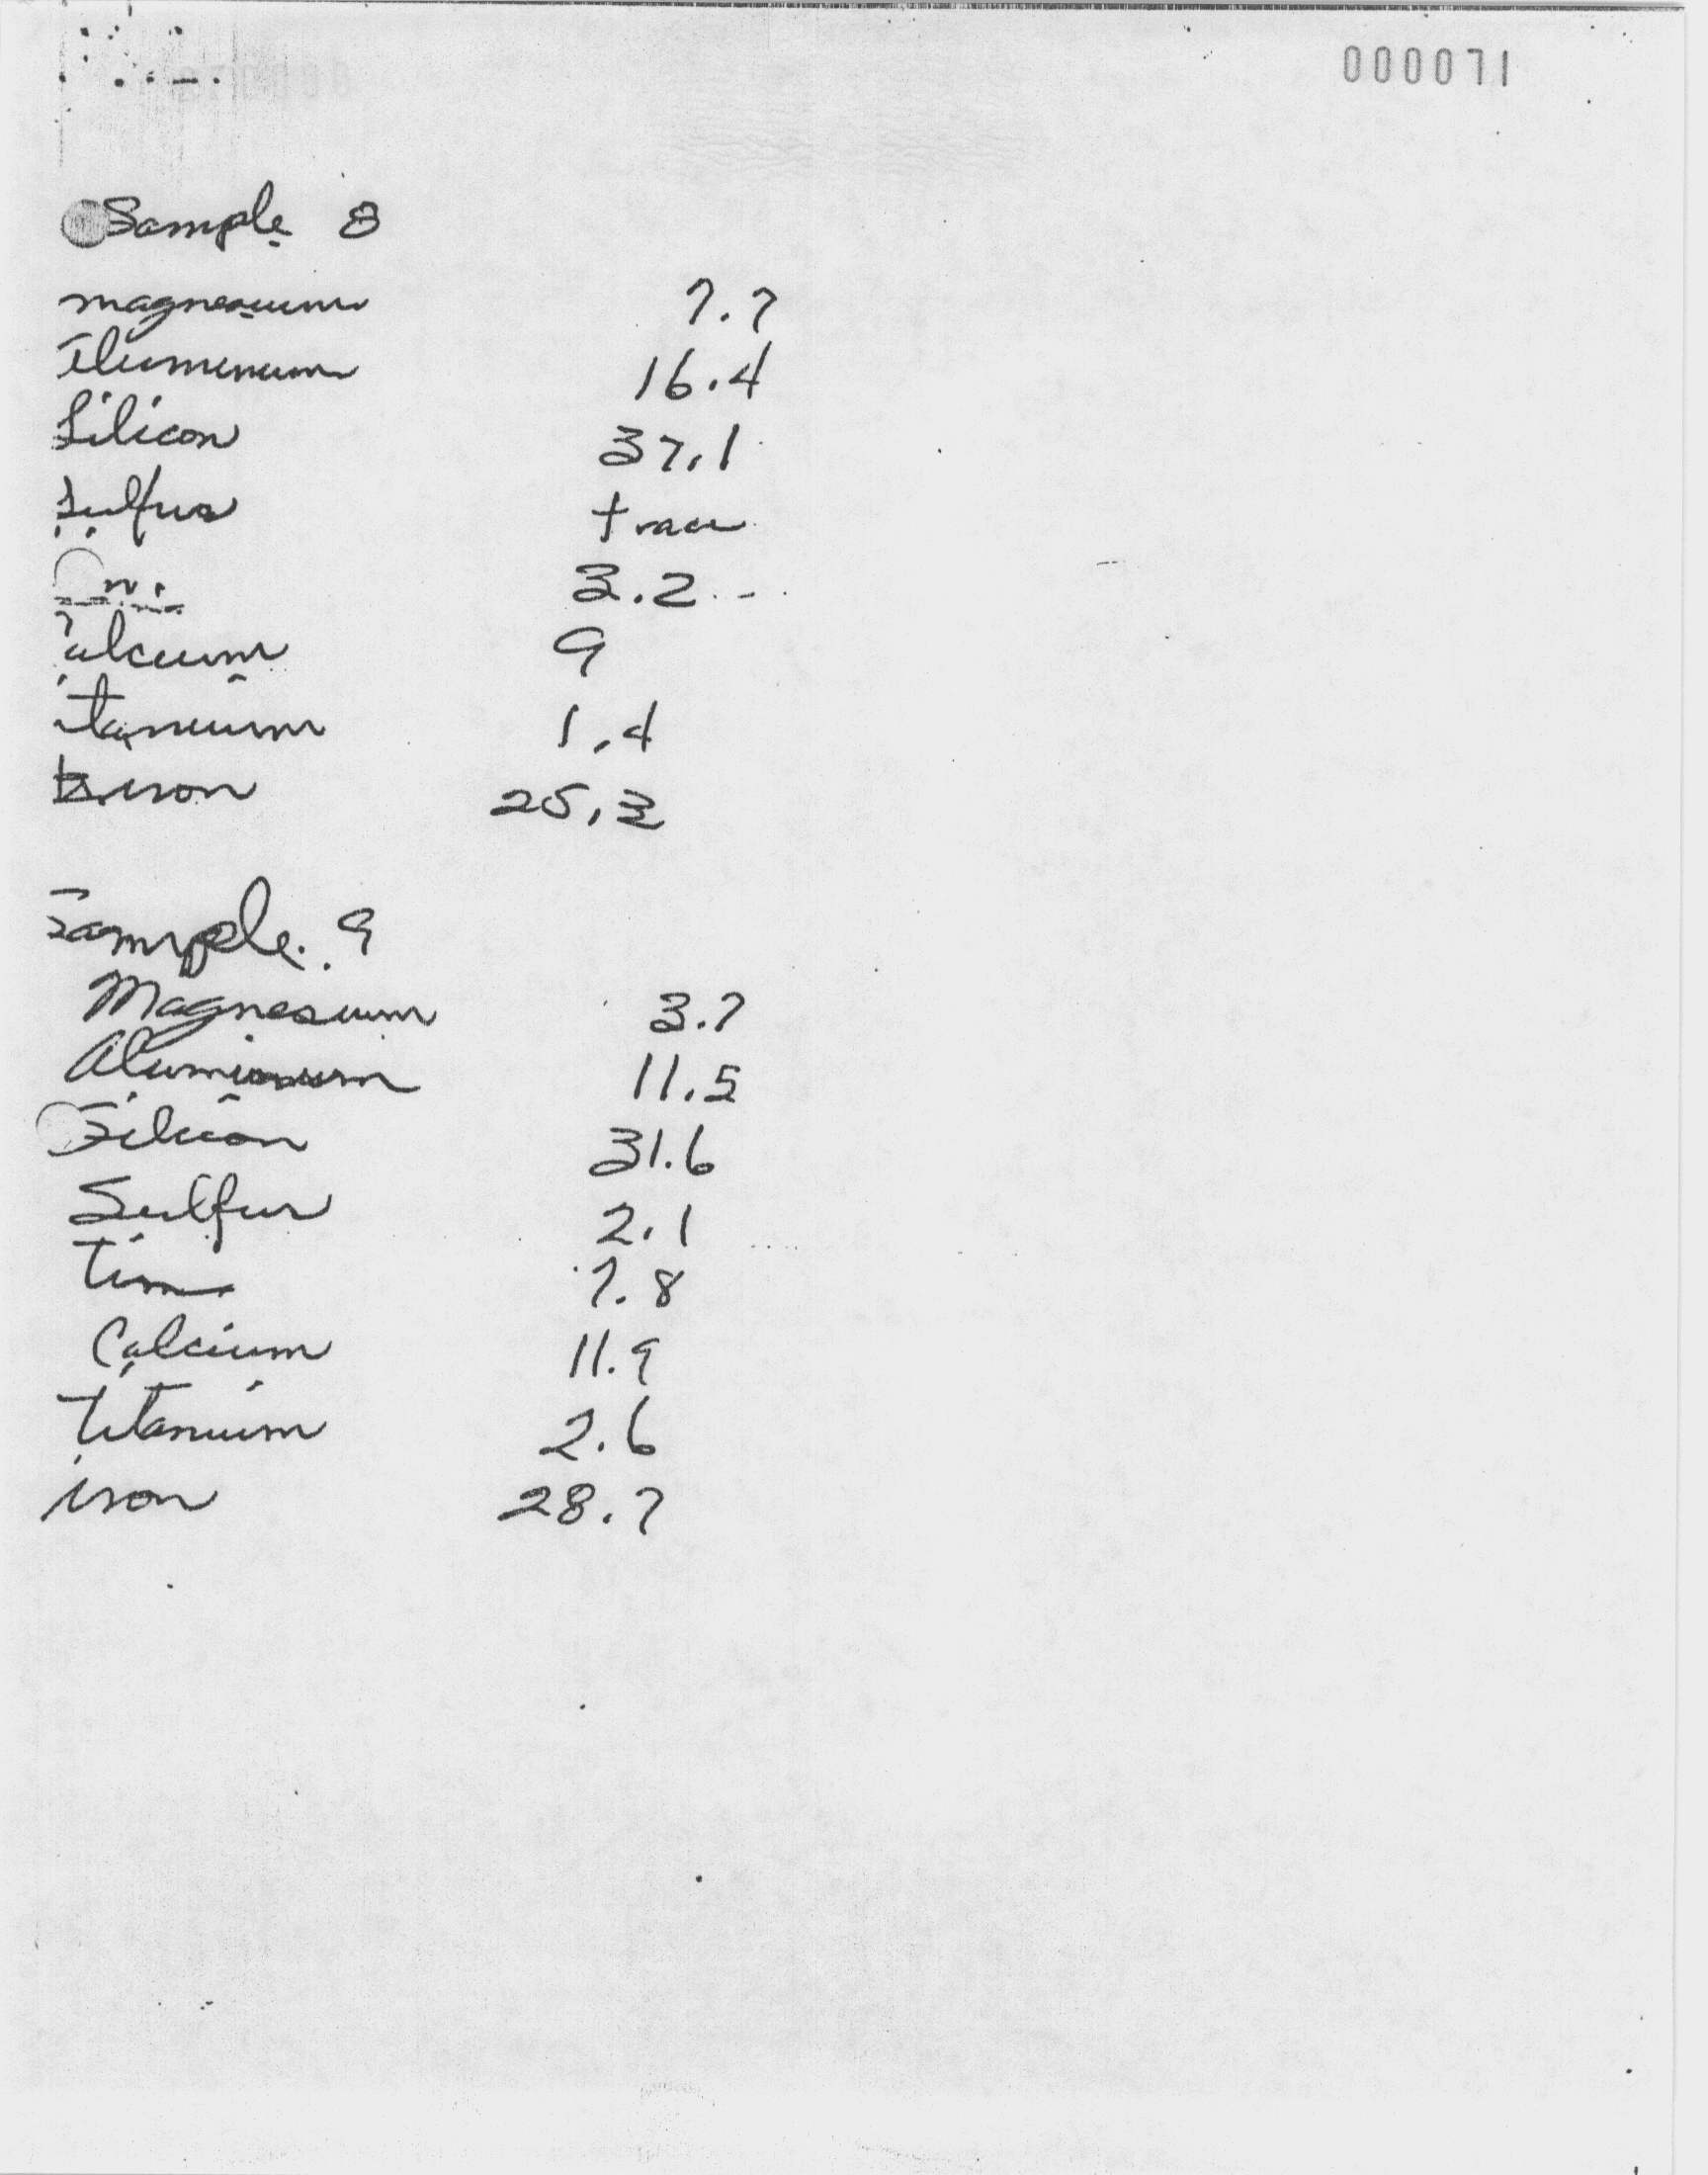 000071
Sample 8
magnesium 7.7
Aluminum 16.4
Silicon 37.1
Sulfur trace
3.2
Calcium 9
titanium 1.4
iron 25.3
Sample 9
Magnesium 3.7
Aluminum 11.5
Silicon 31.6
Sulfur 2.1
Tin 7.8
Calcium 11.9
Titanium 2.6
iron 28.7